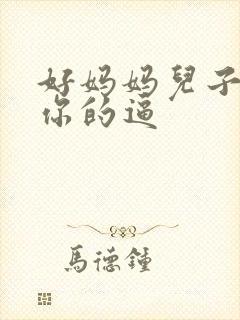 好妈妈兒子
你的逼
馬德鍾